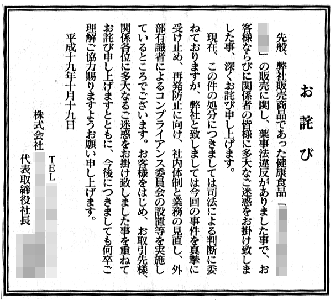 お詫び
先般、弊社販売商品であった健康食品「
」の販売に関し、薬事法違反がありました事で、お
客様ならびに関係者の皆様に多大なご迷惑をお掛け致しま
した事、深くお詫び申し上げます。
現在、この件の処分につきましては司法による判断に委
ねておりますが、弊社と致しましては今回の事件を真摯に
受け止め、再発防止に向け、社内体制と業務の見直し、外
部有識者によるコンプライアンス委員会の設置等を実施し
ているところでございます。お客様をはじめ、お取引先様、
関係各位に多大なるご迷惑をお掛け致しました事を重ねて
お詫び申し上げますとともに、今後につきましても何卒ご
理解ご協力賜りますようお願い申し上げます。
平成十九年十月十九日
株式会社
TEL
代表取締役社長